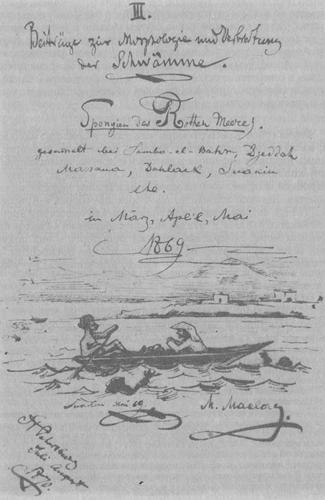 III.
Beiträge zur Morphologie und Verbreitung
der Schwämme.
Spongien des Rothen Meeres.
gesammelt bei Jambo-el-Bahr, Djeddah
Massaua, Dahlack, Suakin
etc.
in März, April, Mai
1869
Suakin Mai 69.
M. Maclay.
St Petersburg
Juli August
1870.